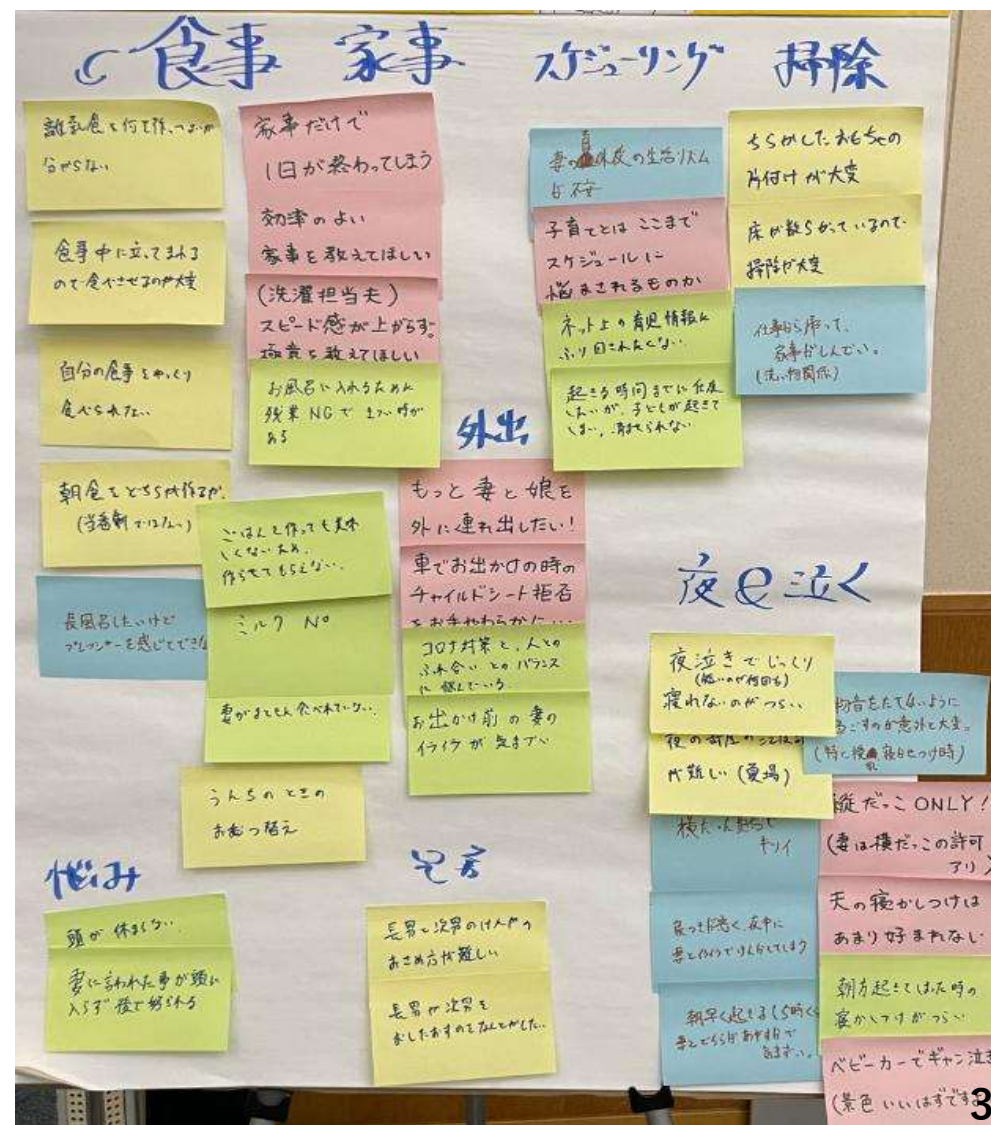 食事
離乳食を何を作ったらよいか
分からない
食事中に立ってまわる
ので食べさせるのが大変
自分の食事をゆっくり
食べられない
朝食をどちらが作るか
(当番制ではない)
長風呂したいけど
プレッシャーを感じてでき
家事
家事だけで
1日が終わってしまう
効率のよい
家事を教えてほしい
(洗濯担当夫)
スピード感が上がらず。
極意を教えてほしい
お風呂に入れるために
残業NGで
ある
ごはんを作っても美味
しくないため、
作らせてもらえない。
ミルク No
妻がまともに食べれていない。
うんちのときの
おむつ替え
スケジューリング
妻の
の生活リズム
が不安
子育てとはここまで
スケジュールに
悩まされるものか
ネット上の育児情報に
ふり回されたくない
起きる時間までに
したいが、子どもが起きて
しまい、済ませられない
掃除
ちらかしたおもちゃの
片付けが大変
床が散らかっているので
掃除が大変
仕事から帰って、
家事がしんどい。
(洗い物関係)
外出
もっと妻と娘を
外に連れ出したい!
車でお出かけの時の
チャイルドシート拒否
をお手やわらかに…
コロナ対策と、人との
ふれ合いとのバランス
に悩んでいる
お出かけ前の妻の
イライラが気まずい
夜 泣く
夜泣きでじっくり
(短いのが何回も)
寝れないのがつらい
夜の部屋の
が難しい(夏場)
物音をたてないように
過ごすのが意外と大変。
(特に 寝かせつけ時)
キツイ
夜中に
妻とイライラでけんかしてしまう
朝早く起きる(5時
妻とどちらが
気まずい。
縦だっこONLY!
(妻は横だっこの許可
アリ)
夫の寝かしつけは
あまり好まれない
朝方起きてしまった時の
寝かしつけがつらい
ベビーカーでギャン泣き
(景色いいはずです
悩み
頭が休まらない
妻に言われた事が頭に
入らず後で怒られる
兄弟
長男と次男のけんかの
おさめ方が難しい
長男が次男を
おしたおすのをなんとかしたい
3